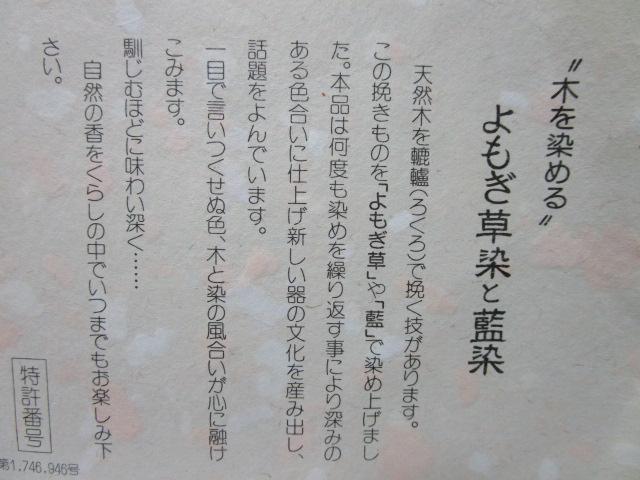 〝木を染める〟
よもぎ草染と藍染
天然木を轆轤(ろくろ)で挽く技があります。
この挽きものを「よもぎ草」や「藍」で染め上げまし
た。本品は何度も染めを繰り返す事により深みの
ある色合いに仕上げ新しい器の文化を産み出し、
話題をよんでいます。
一目で言いつくせぬ色、木と染の風合いが心に融け
こみます。
馴じむほどに味わい深く……
自然の香をくらしの中でいつまでもお楽しみ下
さい。
特許番号
第1.746.946号